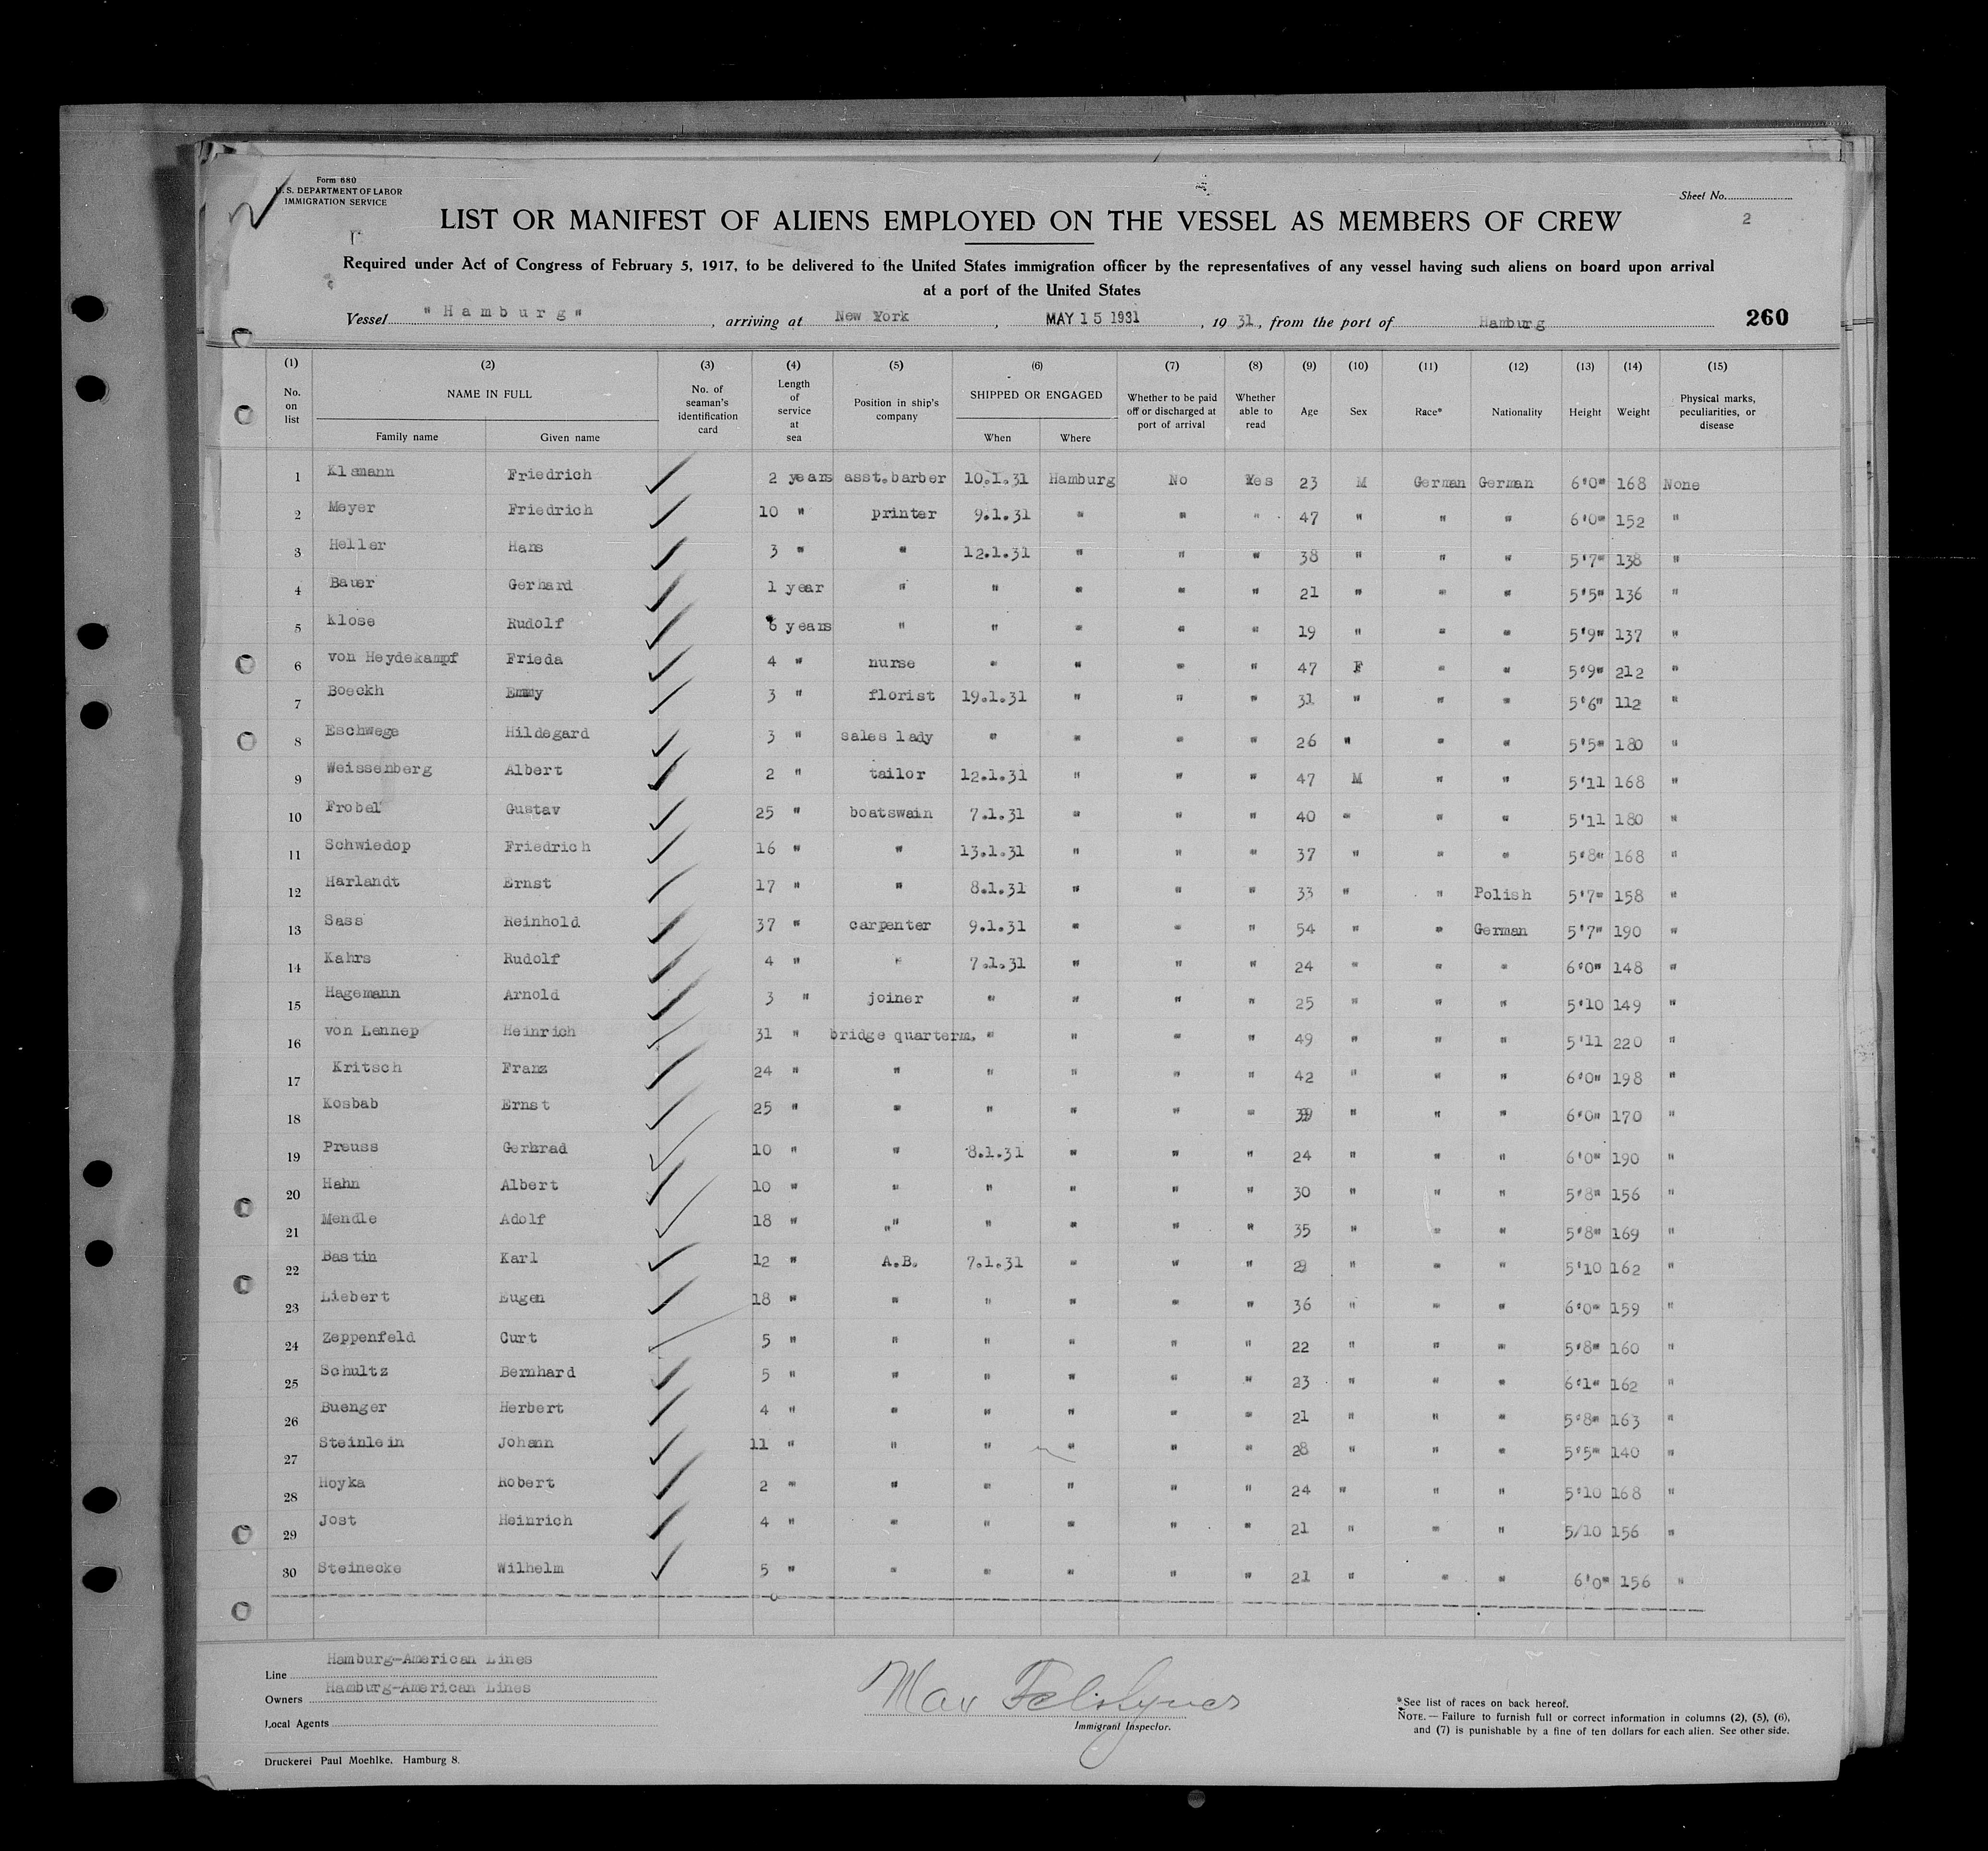 Form 680
U. S. DEPARTMENT OF LABOR
IMMIGRATION SERVICE
Sheet No.
2
LIST OR MANIFEST OF ALIENS EMPLOYED ON THE VESSEL AS MEMBERS OF CREW
Required under Act of Congress of February 5, 1917, to be delivered to the United States immigration officer by the representatives of any vessel having such aliens on board upon arrival
at a port of the United States
Vessel "Hamburg", arriving at New York, MAY 15 1931, 1931, from the port of Hamburg 260
(1) (2) (3) (4) (5) (6) (7) (8) (9) (10) (11) (12) (13) (14) (15)
No. on list NAME IN FULL Family name Given name No. of seaman's identification card Length of service at sea Position in ship's company SHIPPED OR ENGAGED When Where Whether to be paid off or discharged at port of arrival Whether able to read Age Sex Race* Nationality Height Weight Physical marks, peculiarities, or disease
1 Klamann Friedrich 2 years asst.barber 10.1.31 Hamburg No Yes 23 M German German 6'0" 168 None
2 Meyer Friedrich 10 " printer 9.1.31 " " " 47 " " " 6'0" 152 "
3 Heller Hans 3 " " 12.1.31 " " " 38 " " " 5'7" 138 "
4 Bauer Gerhard 1 year " " " " " 21 " " " 5'5" 136 "
5 Klose Rudolf 6 years " " " " " 19 " " " 5'9" 137 "
6 von Heydekampf Frieda 4 " nurse " " " " 47 F " " 5'9" 212 "
7 Boeckh Emmy 3 " florist 19.1.31 " " " 31 " " " 5'6" 112 "
8 Eschwege Hildegard 3 " sales lady " " " " 26 " " " 5'5" 180 "
9 Weissenberg Albert 2 " tailor 12.1.31 " " " 47 M " " 5'11 168 "
10 Frobel Gustav 25 " boatswain 7.1.31 " " " 40 " " " 5'11 180 "
11 Schwiedop Friedrich 16 " " 13.1.31 " " " 37 " " " 5'8" 168 "
12 Harlandt Ernst 17 " " 8.1.31 " " " 33 " " Polish 5'7" 158 "
13 Sass Reinhold 37 " carpenter 9.1.31 " " " 54 " " German 5'7" 190 "
14 Kahrs Rudolf 4 " " 7.1.31 " " " 24 " " " 6'0" 148 "
15 Hagemann Arnold 3 " joiner " " " " 25 " " " 5'10 149 "
16 von Lennep Heinrich 31 " bridge quarterm. " " " " 49 " " " 5'11 220 "
17 Kritsch Franz 24 " " " " " " 42 " " " 6'0" 198 "
18 Kosbab Ernst 25 " " " " " " 39 " " " 6'0" 170 "
19 Preuss Gerhrad 10 " " 8.1.31 " " " 24 " " " 6'0" 190 "
20 Hahn Albert 10 " " " " " " 30 " " " 5'8" 156 "
21 Mendle Adolf 18 " " " " " " 35 " " " 5'8" 169 "
22 Bastin Karl 12 " A.B. 7.1.31 " " " 29 " " " 5'10 162 "
23 Liebert Eugen 18 " " " " " " 36 " " " 6'0" 159 "
24 Zeppenfeld Curt 5 " " " " " " 22 " " " 5'8" 160 "
25 Schultz Bernhard 5 " " " " " " 23 " " " 6'1" 162 "
26 Buenger Herbert 4 " " " " " " 21 " " " 5'8" 163 "
27 Steinlein Johann 11 " " " " " " 28 " " " 5'5" 140 "
28 Hoyka Robert 2 " " " " " " 24 " " " 5'10 168 "
29 Jost Heinrich 4 " " " " " " 21 " " " 5/10 156 "
30 Steinecke Wilhelm 5 " " " " " " 21 " " " 6'0" 156 "
Line Hamburg-American Lines
Owners Hamburg-American Lines
Local Agents
Max
Immigrant Inspector.
*See list of races on back hereof.
NOTE.—Failure to furnish full or correct information in columns (2), (5), (6),
and (7) is punishable by a fine of ten dollars for each alien. See other side.
Druckerei Paul Moehlke, Hamburg 8.